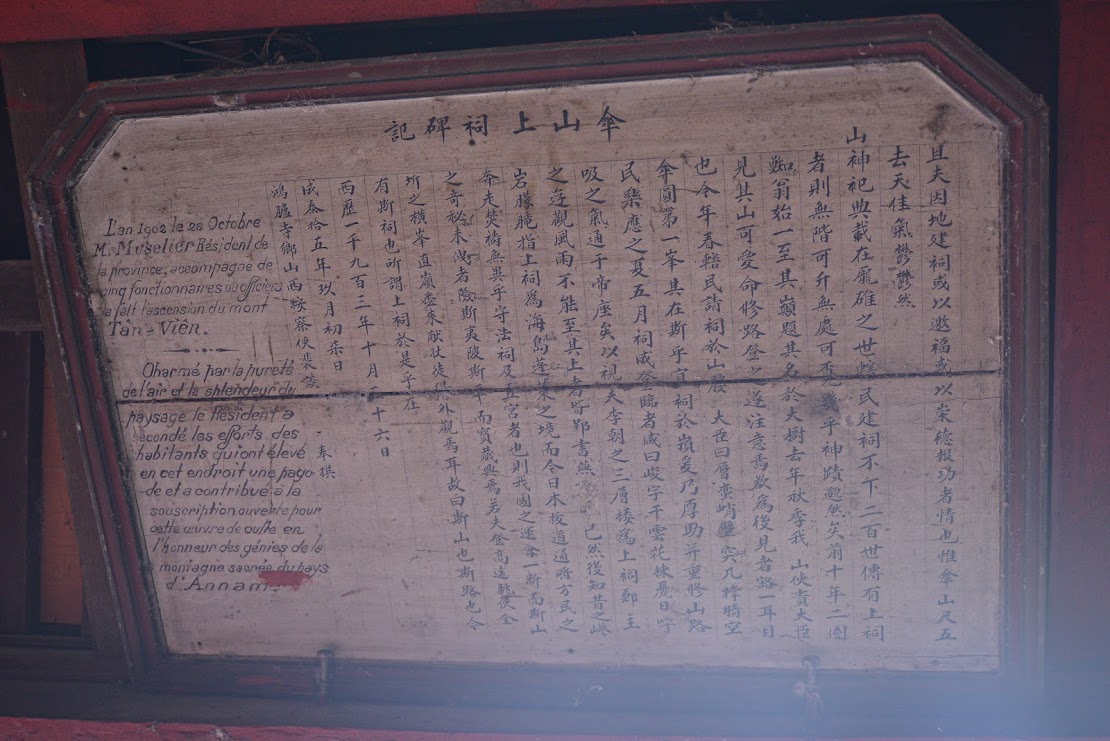 傘山上祠碑記
且夫因地建祠或以邀福或以崇德報功者情也惟傘山尺五
去天佳氣鬱鬱然
山神祀典載在龐雄之世轄民建祠不下二百世傳有上祠
者則無階可升無處可覓幾乎神蹟邈然矣前十年二圈
蜘翁始一至其巔題其名於大樹去年秋季我 山使貴大臣
見其山可愛命修路登之遂注意焉歎為後見者豁一耳目
也今年春轄民請祠於山腰 大臣曰層巒峭壁突兀橫晴空
傘圓第一峯其在斯乎宜祠於嶺爰乃厚助并重修山路
民樂應之夏五月祠成登臨者咸曰峻宇干雲花棟麗日呼
吸之氣通于帝座矣以視夫李朝之三層樓為上祠鄭主
之遙觀風雨不能至其上者皆郢書然 已然後知昔之
岩朦朧指上祠為海島蓬萊之境而今日木拔道通將方民之
奔走焚禱無異乎守法祠及五宮者也則我國之進一新而斯山
之奇祕未洩者險斯夷陂斯平而寶藏興焉若夫登高遠眺俠全
圻之橫峯直嶺盡來献状徒得外觀焉耳故曰斯山也斯路也今
有斯祠也所謂上祠於是乎在
西歷一千九百三年十月二十六日
成泰拾五年玖月初柒日
鴻臚寺鄉山西按察使裴 奉撰
L'an 1902 le 28 Octobre
M. Muselier Résident de
la province, accompagné de
cinq fonctionnaires ou officiers
a fait l'ascension du mont
Tân-Viên.
Charmé par la pureté
de l'air et la splendeur du
paysage le Résident a
secondé les efforts des
habitants qui ont élevé
en cet endroit une pago-
-de et a contribué à la
souscription ouverte pour
cette œuvre de culte en
l'honneur des génies de la
montagne sacrée du pays
d'Annam.